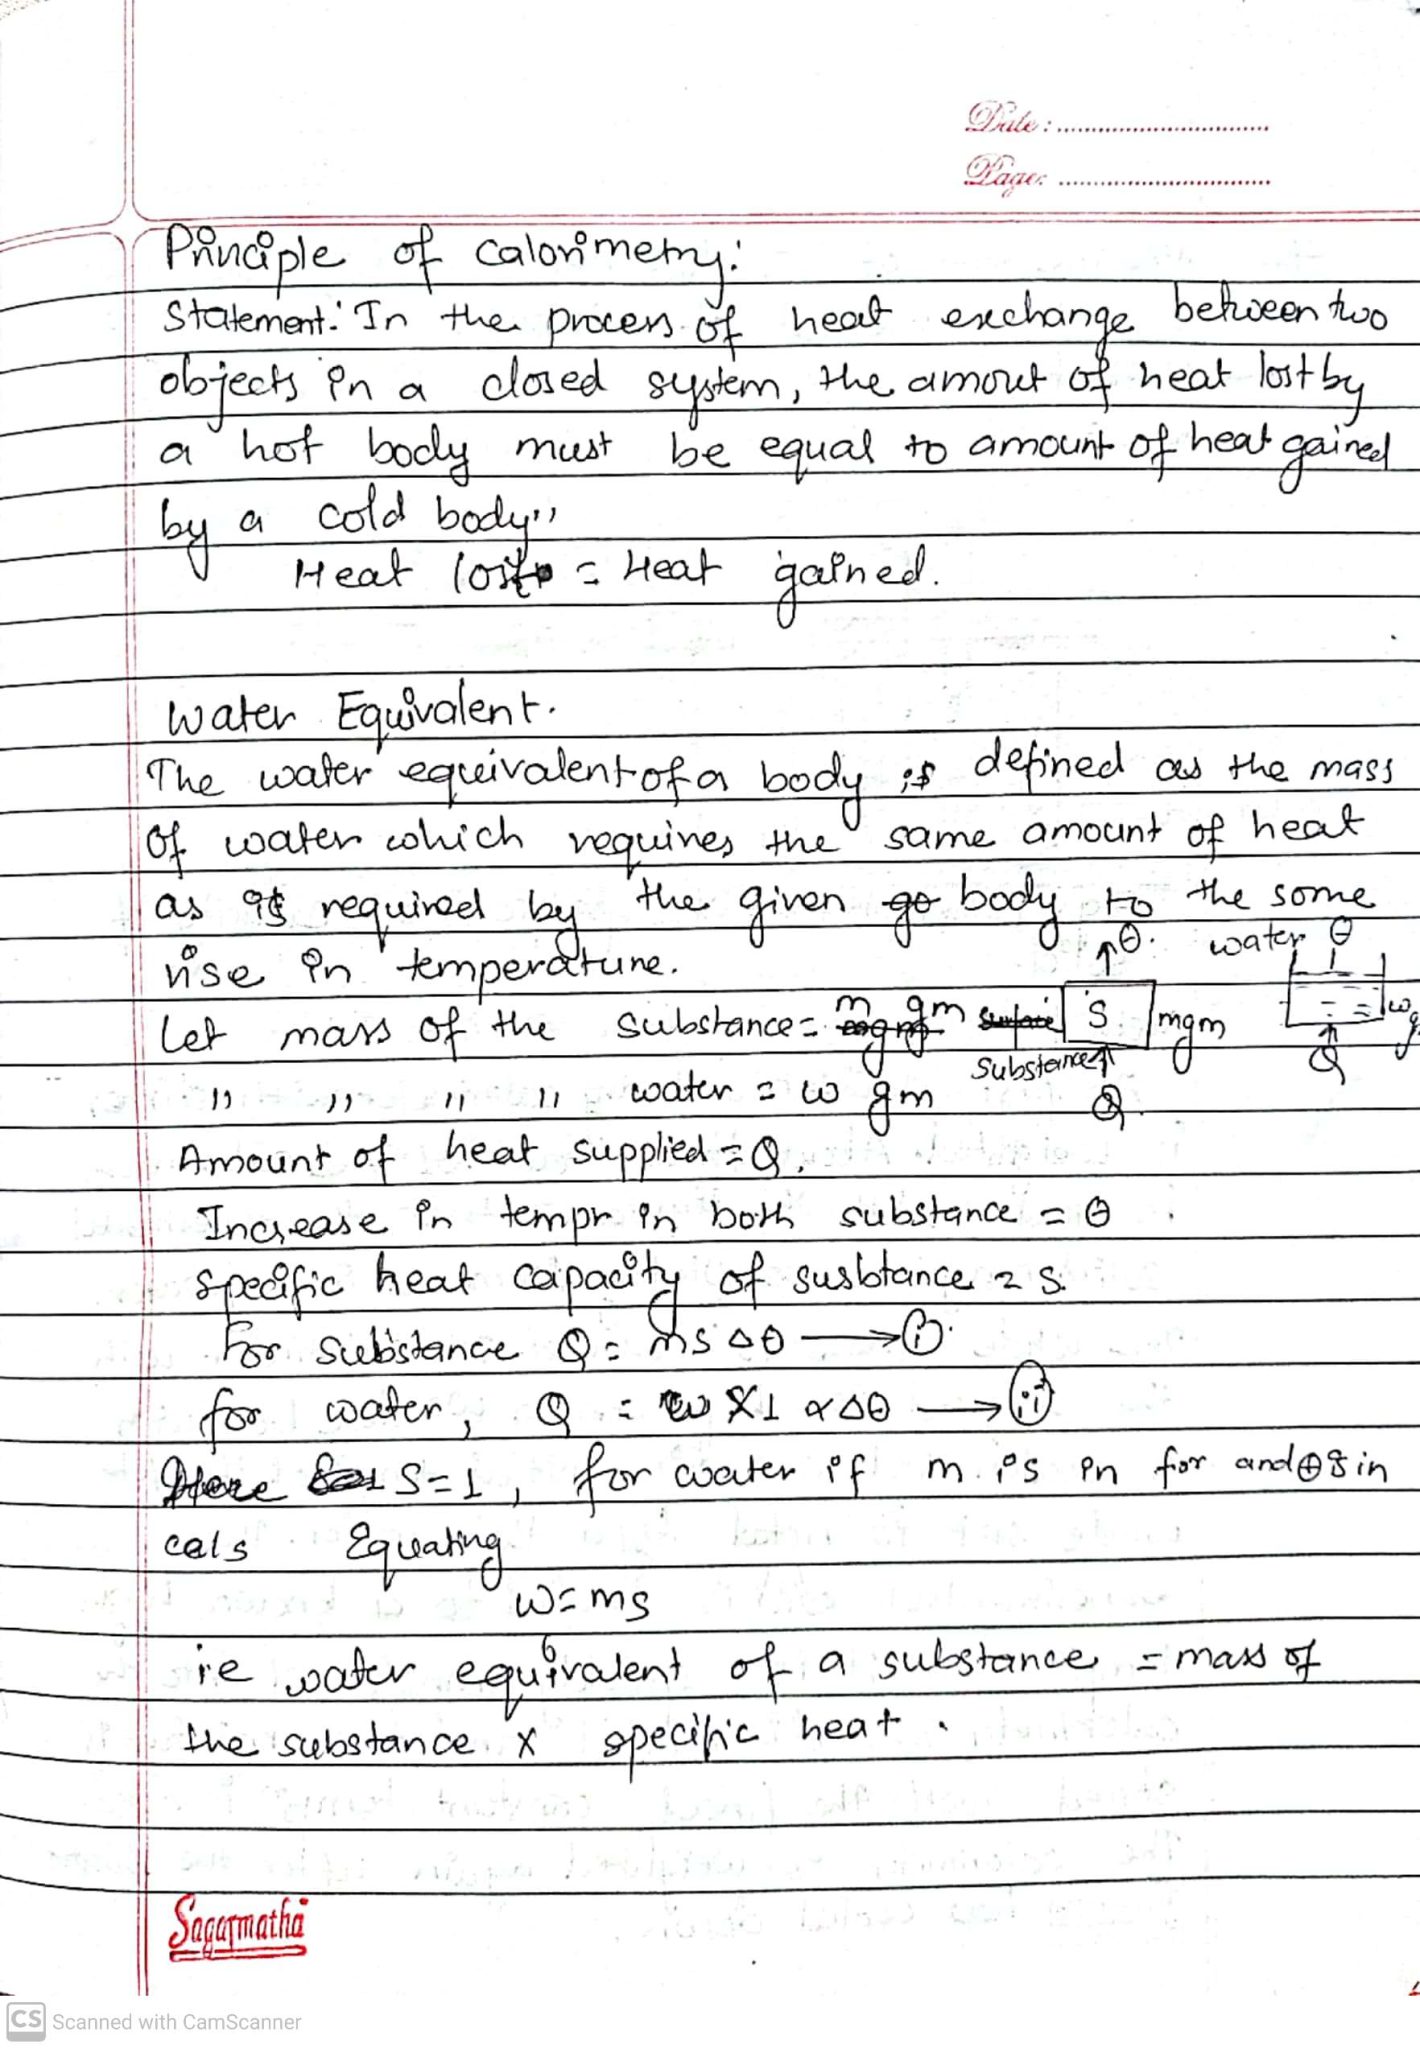 Date :
Page:
Principle of calorimetry:
Statement: In the process of heat exchange between two
objects in a closed system, the amout of heat lost by
a hot body must be equal to amount of heat gained
by a cold body,,
Heat lost = Heat gained.
Water Equivalent.
The water equivalent of a body is defined as the mass
of water which requires the same amount of heat
as is required by the given body to the some
rise in temperature.
↑θ. water θ
Let mass of the substance = m gm S mgm w g
Substance Q Q
,, ,, ,, ,, water = w gm
Amount of heat supplied = Q.
Increase in tempr in both substance = θ
Specific heat capacity of susbtance = S.
For substance Q = ms Δθ → (i)
for water, Q = w × 1 × Δθ → (ii)
Here S = 1, for water if m is in and is in
cals Equating
w = ms
ie water equivalent of a substance = mass of
the substance x specific heat.
Sagarmatha
CS Scanned with CamScanner